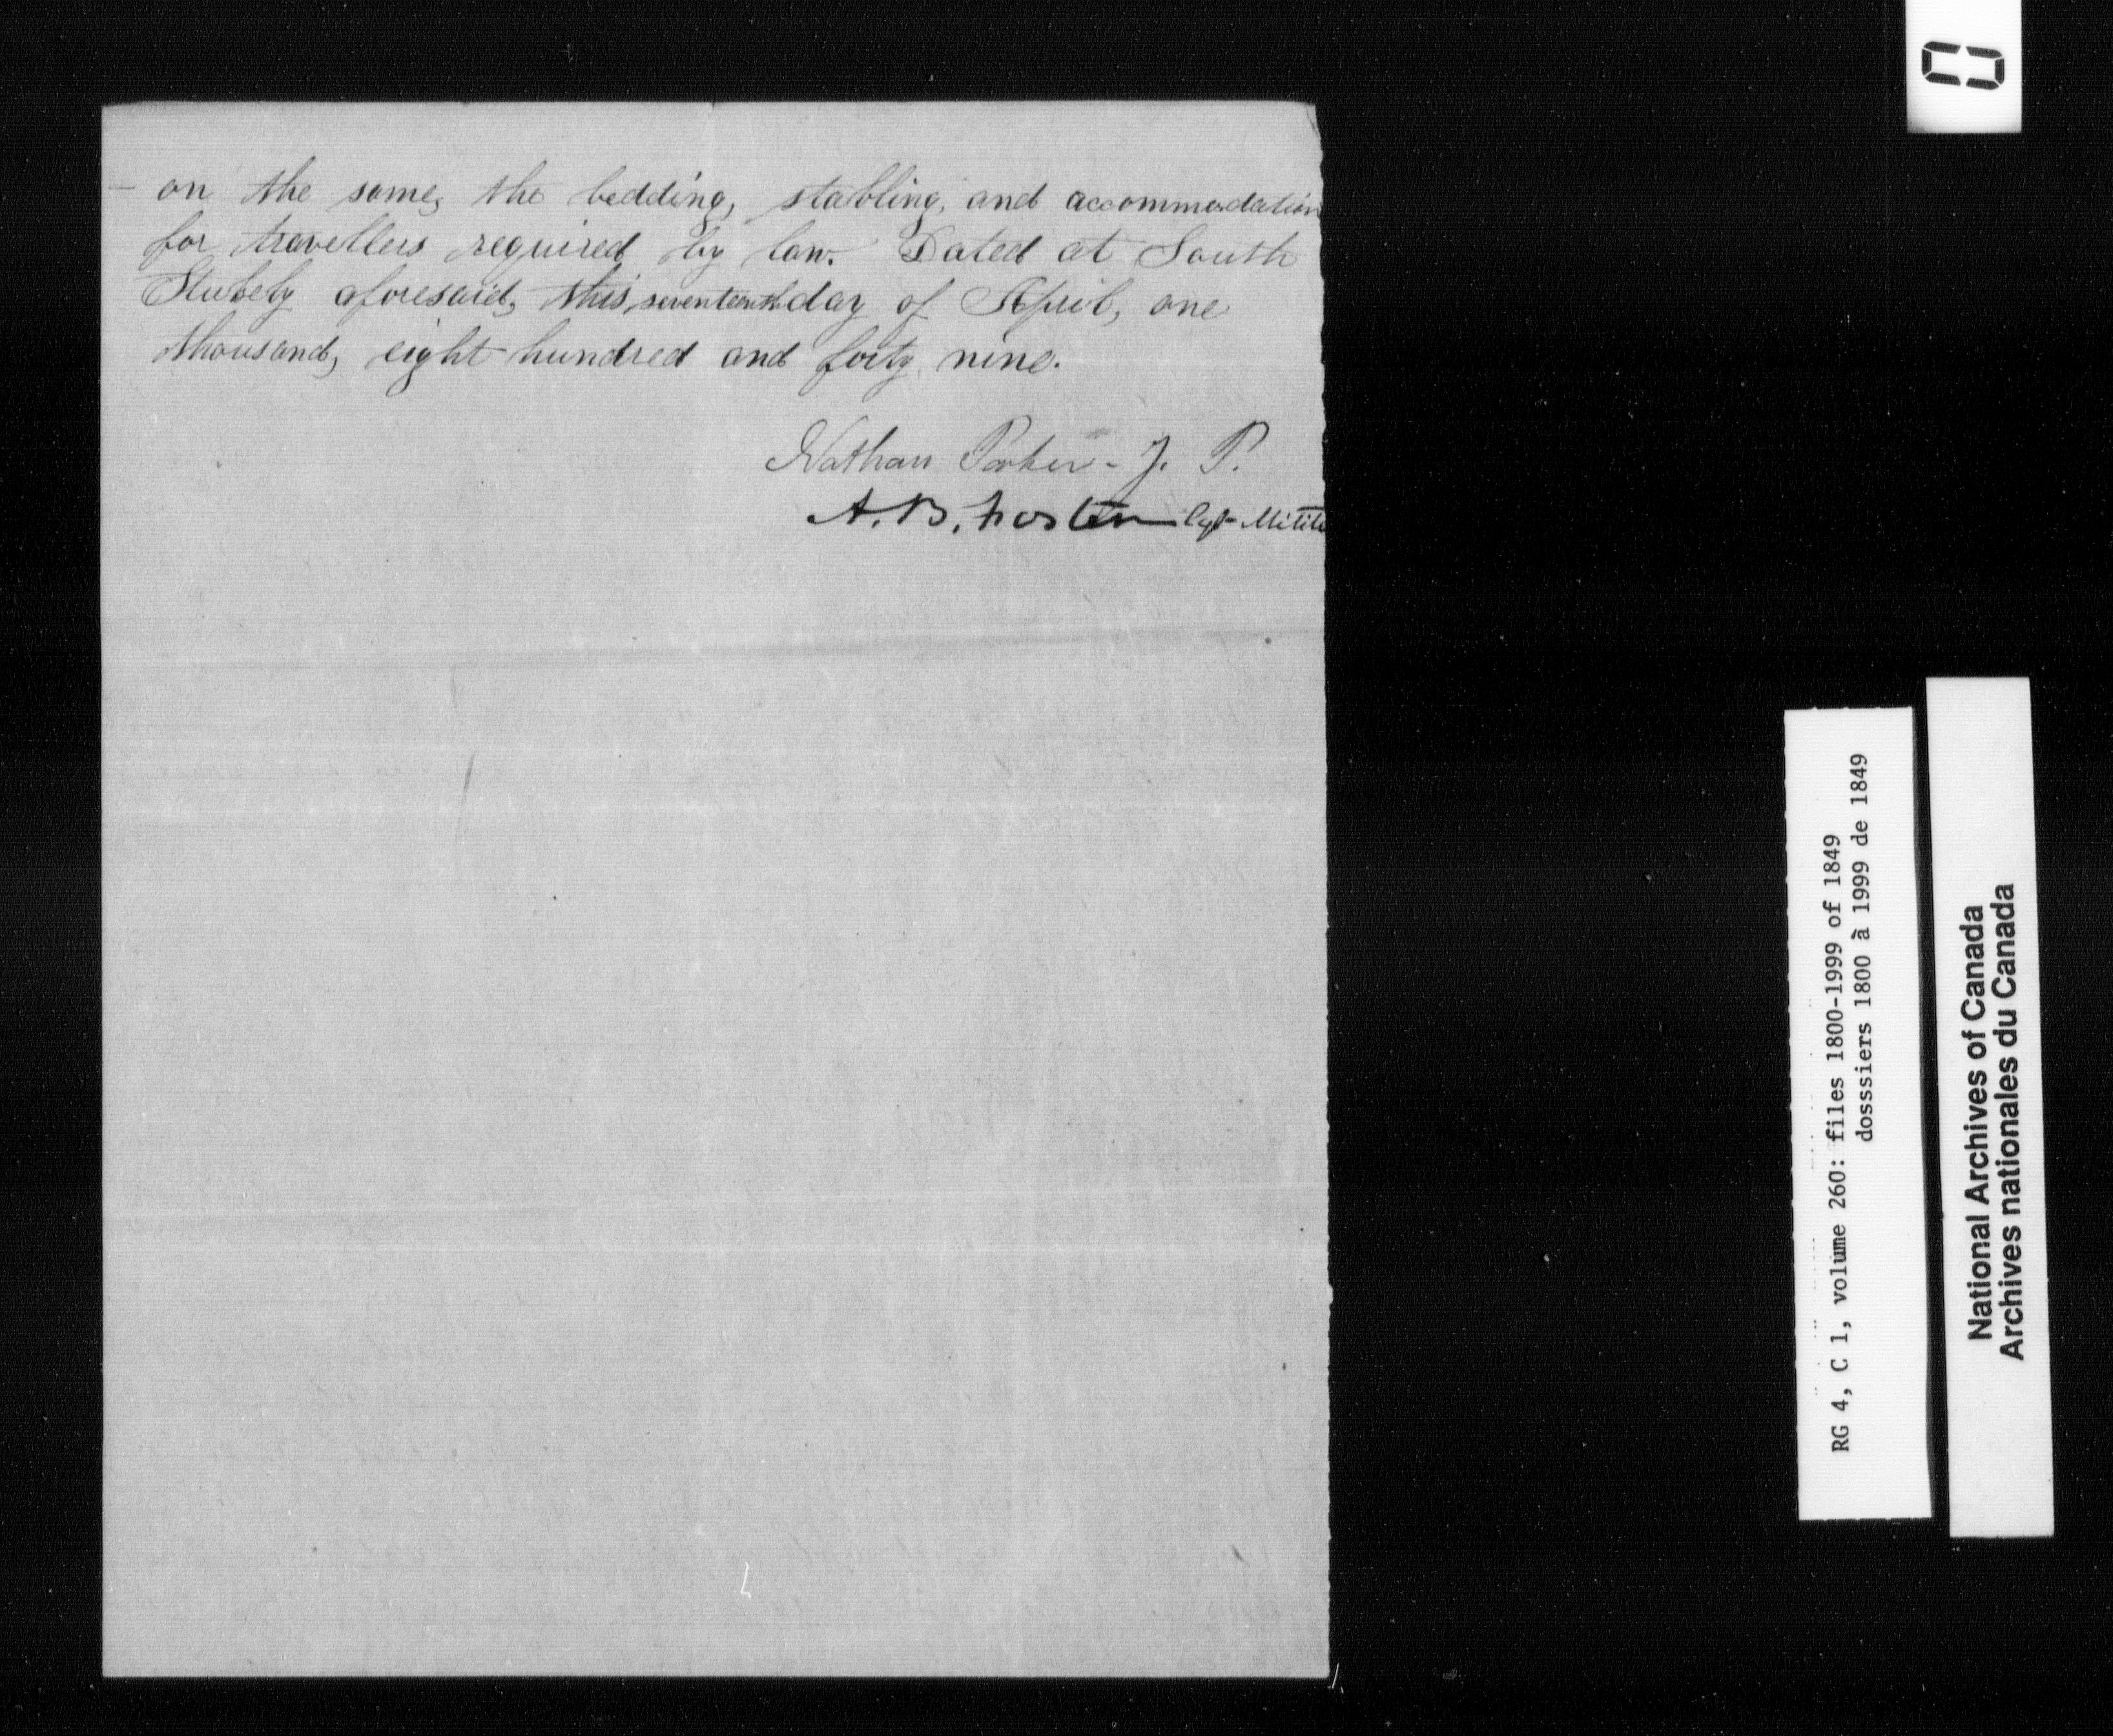 - on the same, the bedding, stabling, and accommodation
for travellers required by law. Dated at South
Stukely aforesaid, this seventeenth day of April, one
thousand, eight hundred and forty nine.
Nathan Parker - J. P.
A. B. Foster Cap Militi
RG 4, C 1, volume 260: files 1800-1999 of 1849
dosssiers 1800 à 1999 de 1849
National Archives of Canada
Archives nationales du Canada